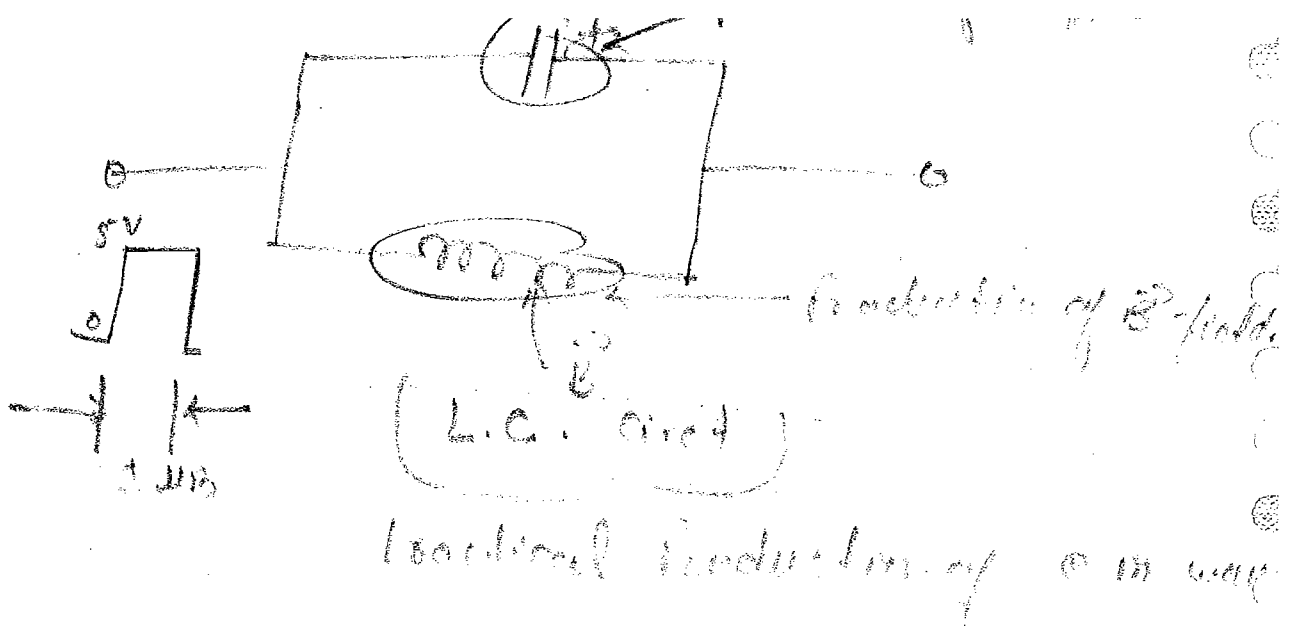 5V
0
Production of B-field.
B
L.C. Circt
1 μs
Practical Production of e m wave